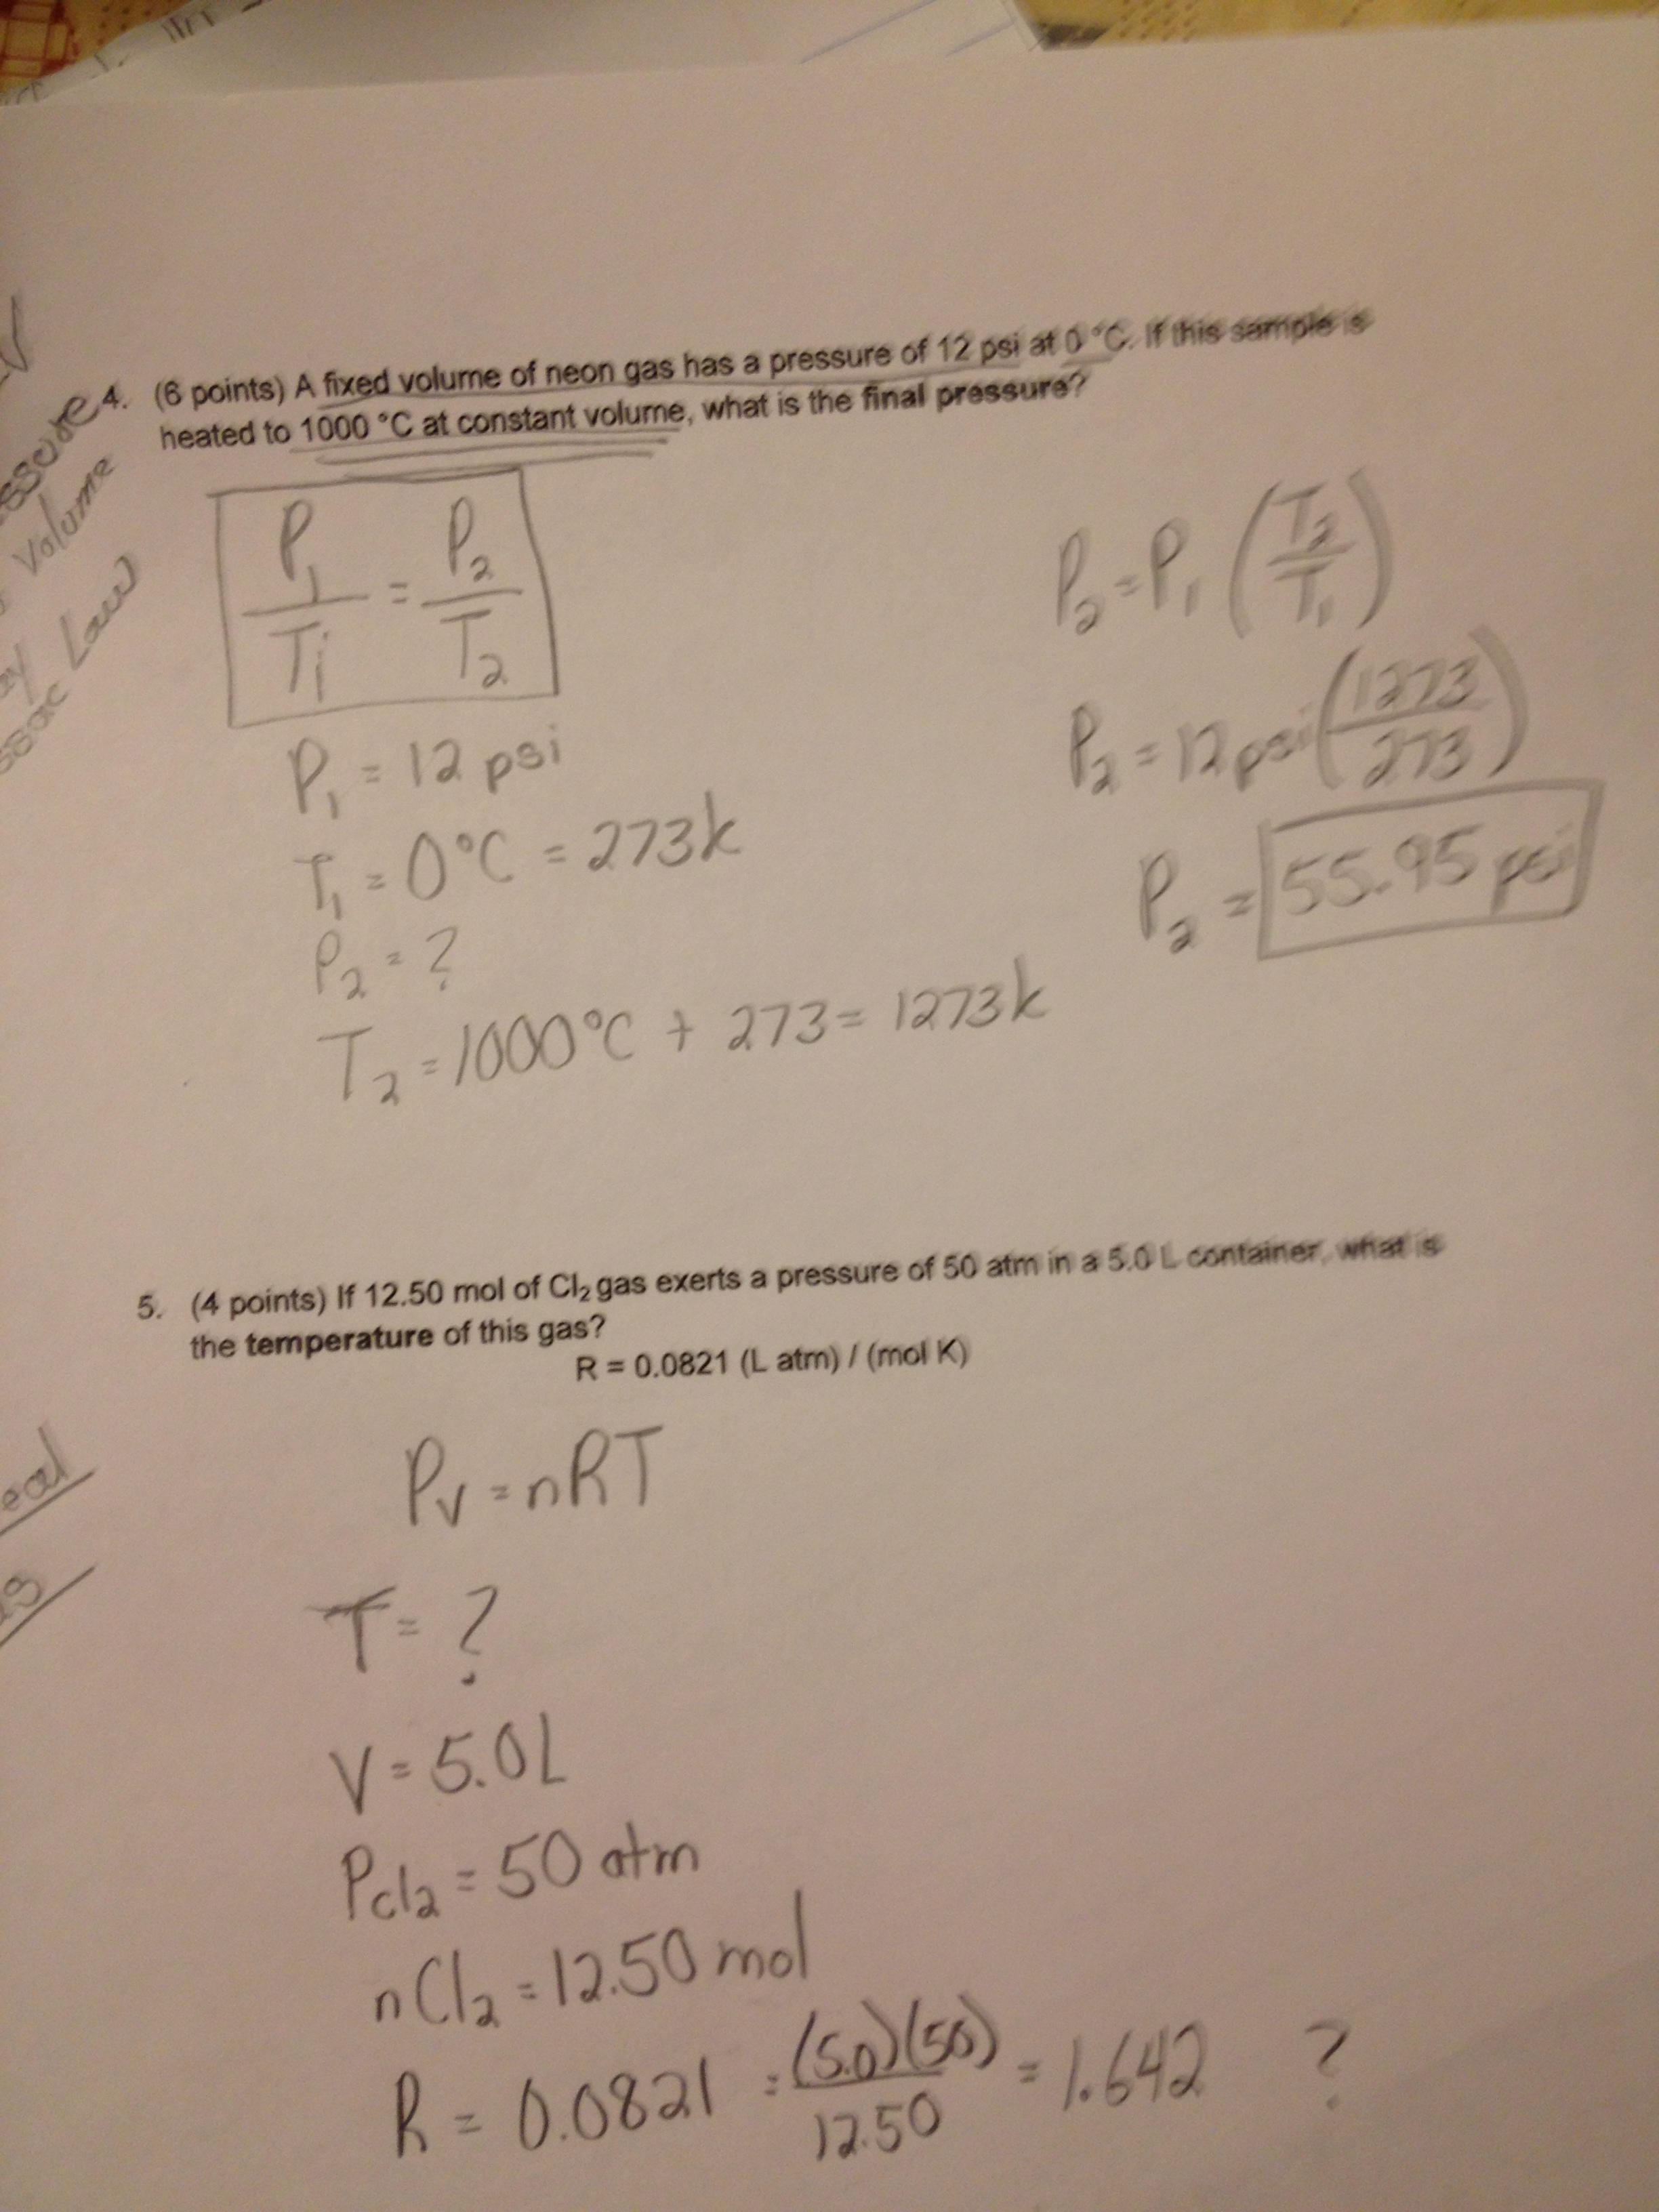 4. (6 points) A fixed volume of neon gas has a pressure of 12 psi at 0 °C. If this sample is
heated to 1000 °C at constant volume, what is the final pressure?
Volume
Law
P₁/T₁ = P₂/T₂
P₂ = P₁ (T₂/T₁)
P₂ = 12 psi (1273/273)
P₂ = 55.95 psi
P₁ = 12 psi
T₁ = 0°C = 273k
P₂ = ?
T₂ = 1000°C + 273 = 1273k
5. (4 points) If 12.50 mol of Cl₂ gas exerts a pressure of 50 atm in a 5.0 L container, what is
the temperature of this gas?
R = 0.0821 (L atm) / (mol K)
PV = nRT
T = ?
V = 5.0L
Pcl₂ = 50 atm
nCl₂ = 12.50 mol
R = 0.0821 = (5.0)(50)/12.50 = 1.642 ?